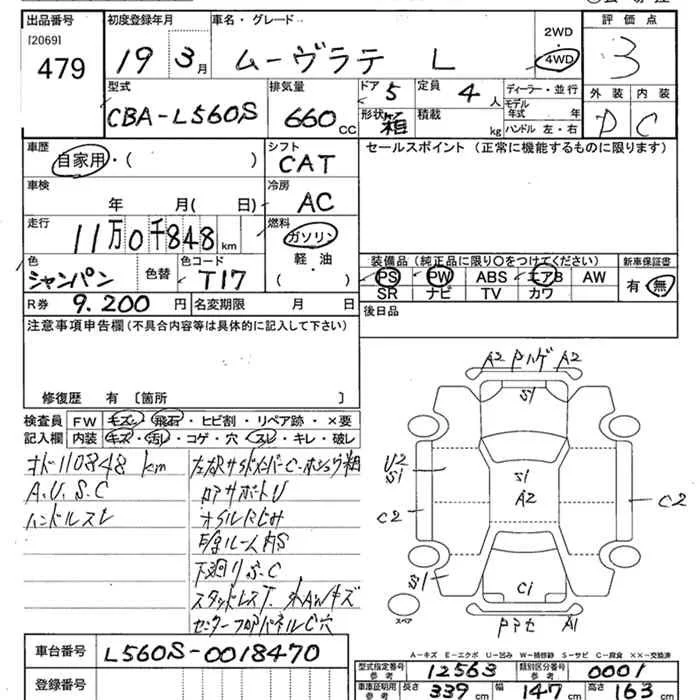 出品番号
[2069]
479
初度登録年月
19 3月
車名・グレード
ムーヴラテ L
2WD
4WD
評価点
3
外装 内装
D C
型式
CBA-L560S
排気量
660 CC
ドア 5
形状 箱
定員 4 人
積載 kg
ディーラー・並行
モデル年式 年
ハンドル 左・右
車歴
自家用・( )
シフト
CAT
セールスポイント(正常に機能するものに限ります)
車検
年 月( 日)
冷房
AC
走行
11万0千848 km
燃料
ガソリン
軽・油
( )
色
シャンパン
色替
色コード
T17
装備品(純正品に限り○をつけてください)
PS PW ABS エアB AW
SR ナビ TV カワ
新車保証書
有・無
R券 9.200 円
名変期限 月 日
後日品
注意事項申告欄(不具合内容等は具体的に記入して下さい)
修復歴 有 〔箇所 〕
検査員 FW キズ・飛石・ヒビ割・リペア跡・×要
記入欄 内装 キズ・汚し・コゲ・穴・スレ・キレ・破レ
オド110848 km
A.U.S.C
ハンドルスレ
オイルにじみ
下廻りS.C
スタッドレスT. 外AWキズ
センターフロアパネルC穴
A2 Pハゲ A2
S1
U2
S1
S1
A2
C2
C2
S1
C1
A1
スペア
A−キズ E−エクボ U−凹み W−補修跡 S−サビ C−腐食 ××−交換済
車台番号
L560S-0018470
登録番号
型式指定番号 参考
12563
類別区分番号 参考
0001
車庫証明用 参考
長さ 339 cm
幅 147 cm
高さ 163 cm